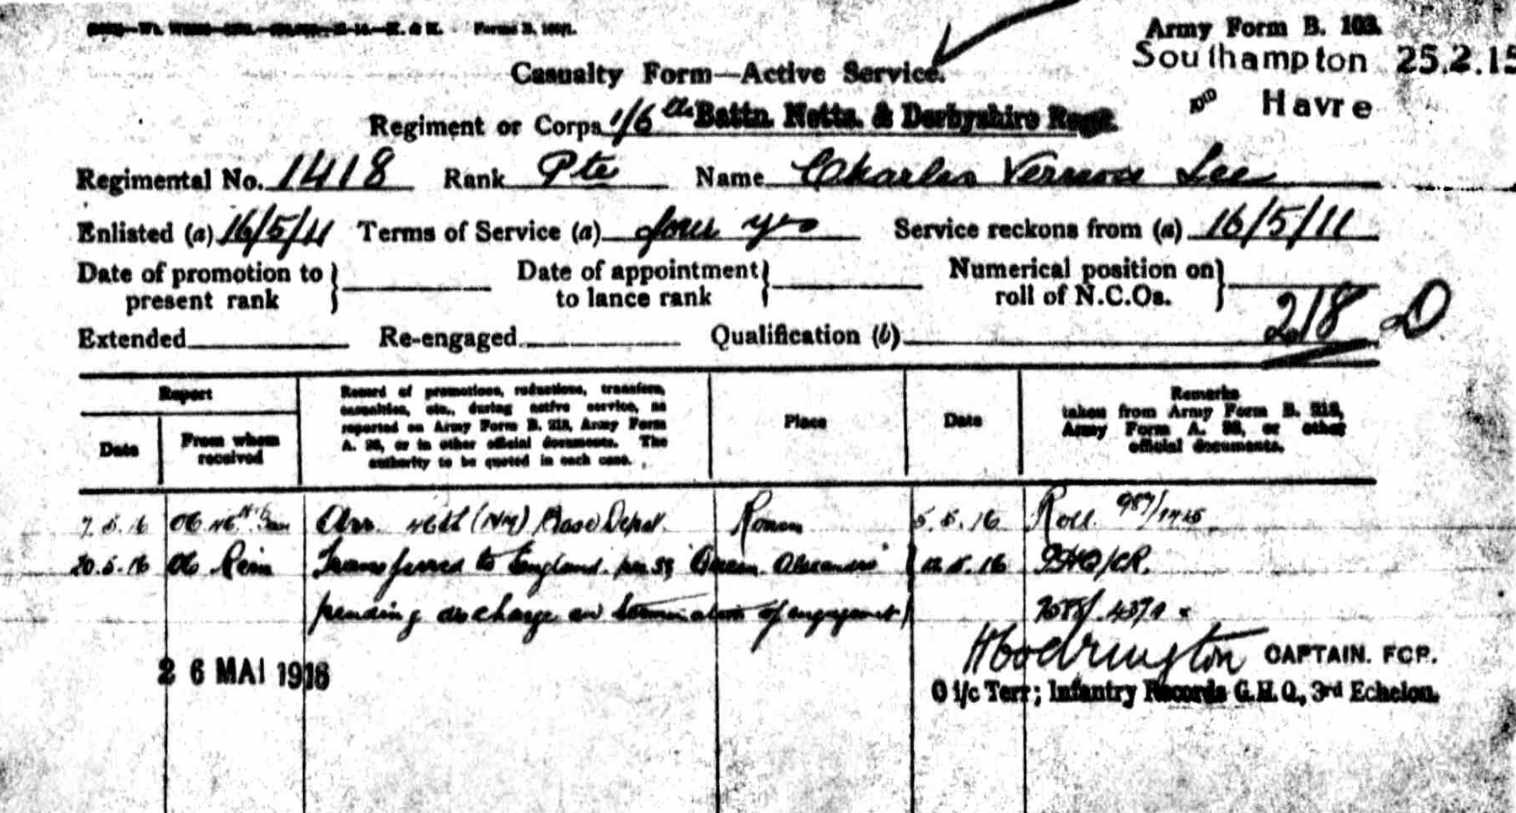 Army Form B. 103.
Casualty Form—Active Service.
Southampton 25.2.15
AND Havre
Regiment or Corps 1/6th Battn. Notts. & Derbyshire Regt.
Regimental No. 1418 Rank Pte Name Charles Vernon Lee
Enlisted (a) 16/5/11 Terms of Service (a) four yrs Service reckons from (a) 16/5/11
Date of promotion to present rank } Date of appointment to lance rank } Numerical position on roll of N.C.Os. }
218 D
Extended Re-engaged Qualification (b)
Report
Date
From whom received
Record of promotions, reductions, transfers, casualties, etc., during active service, as reported on Army Form B. 213, Army Form A. 36, or in other official documents. The authority to be quoted in each case.
Place
Date
Remarks taken from Army Form B. 213, Army Form A. 36, or other official documents.
7.5.16 OC 46th Arr. 46th (NM) Base Depot. Rouen 5.5.16 Roll
20.5.16 Transferred to England per SS "Queen Alexandra" 12.5.16
pending discharge on termination of engagement
26 MAI 1916
CAPTAIN. FOR.
O i/c Terr; Infantry Records G.H.Q., 3rd Echelon.